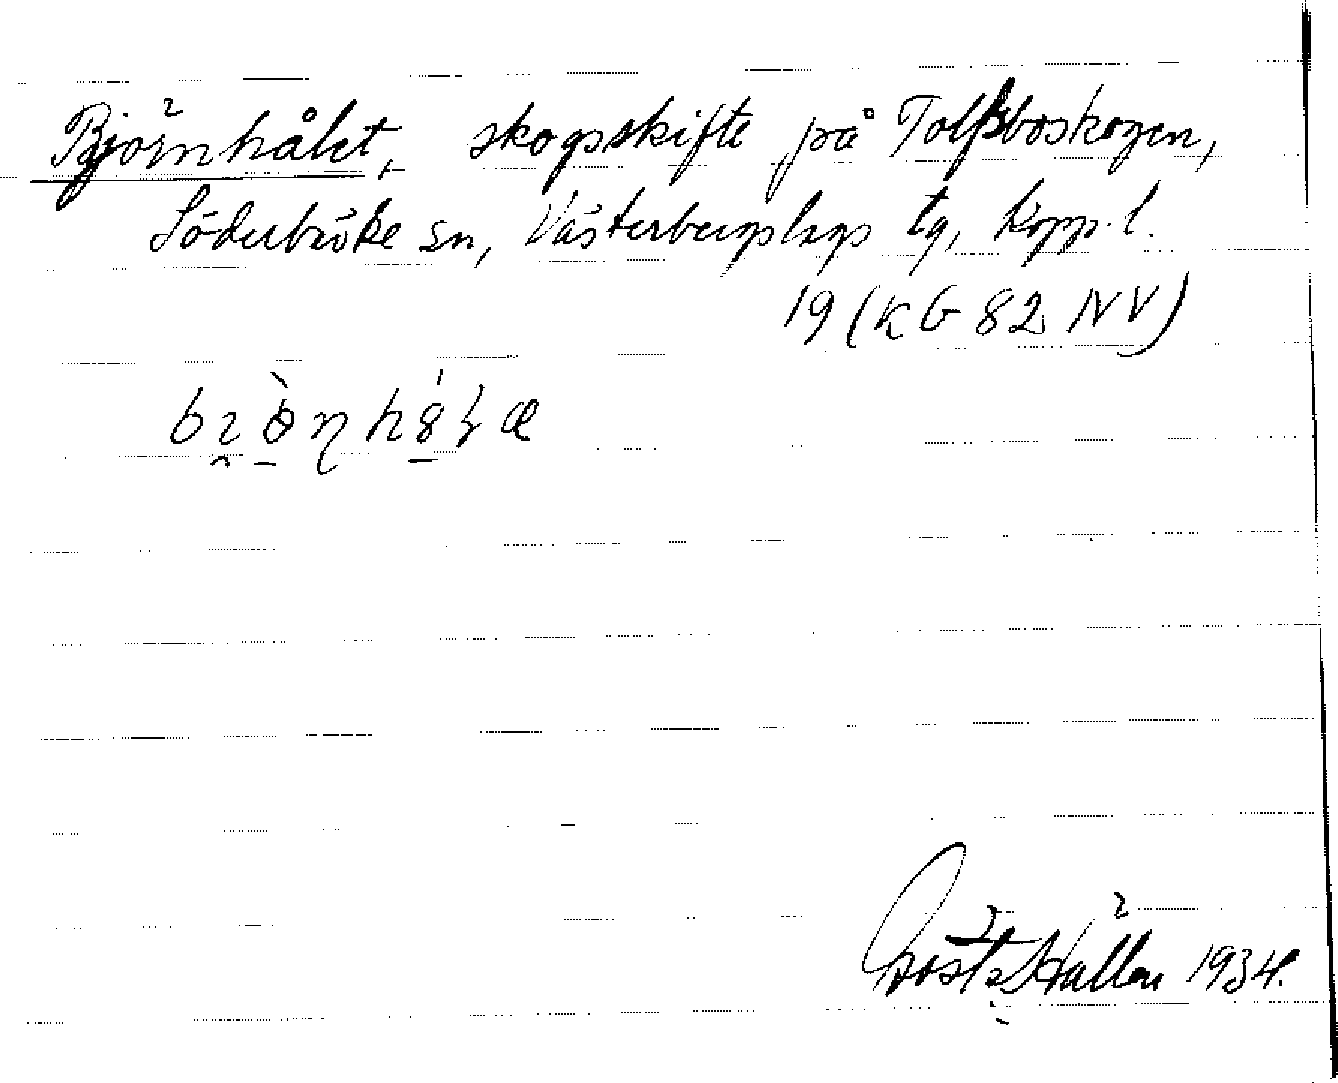 Björnhålet, skogsskifte på Tolfsboskogen,
Söderbärke sn, Västerbergslags tg, Kopp. l.
19 (KG 82 NV)
Gösta Hallén 1934.